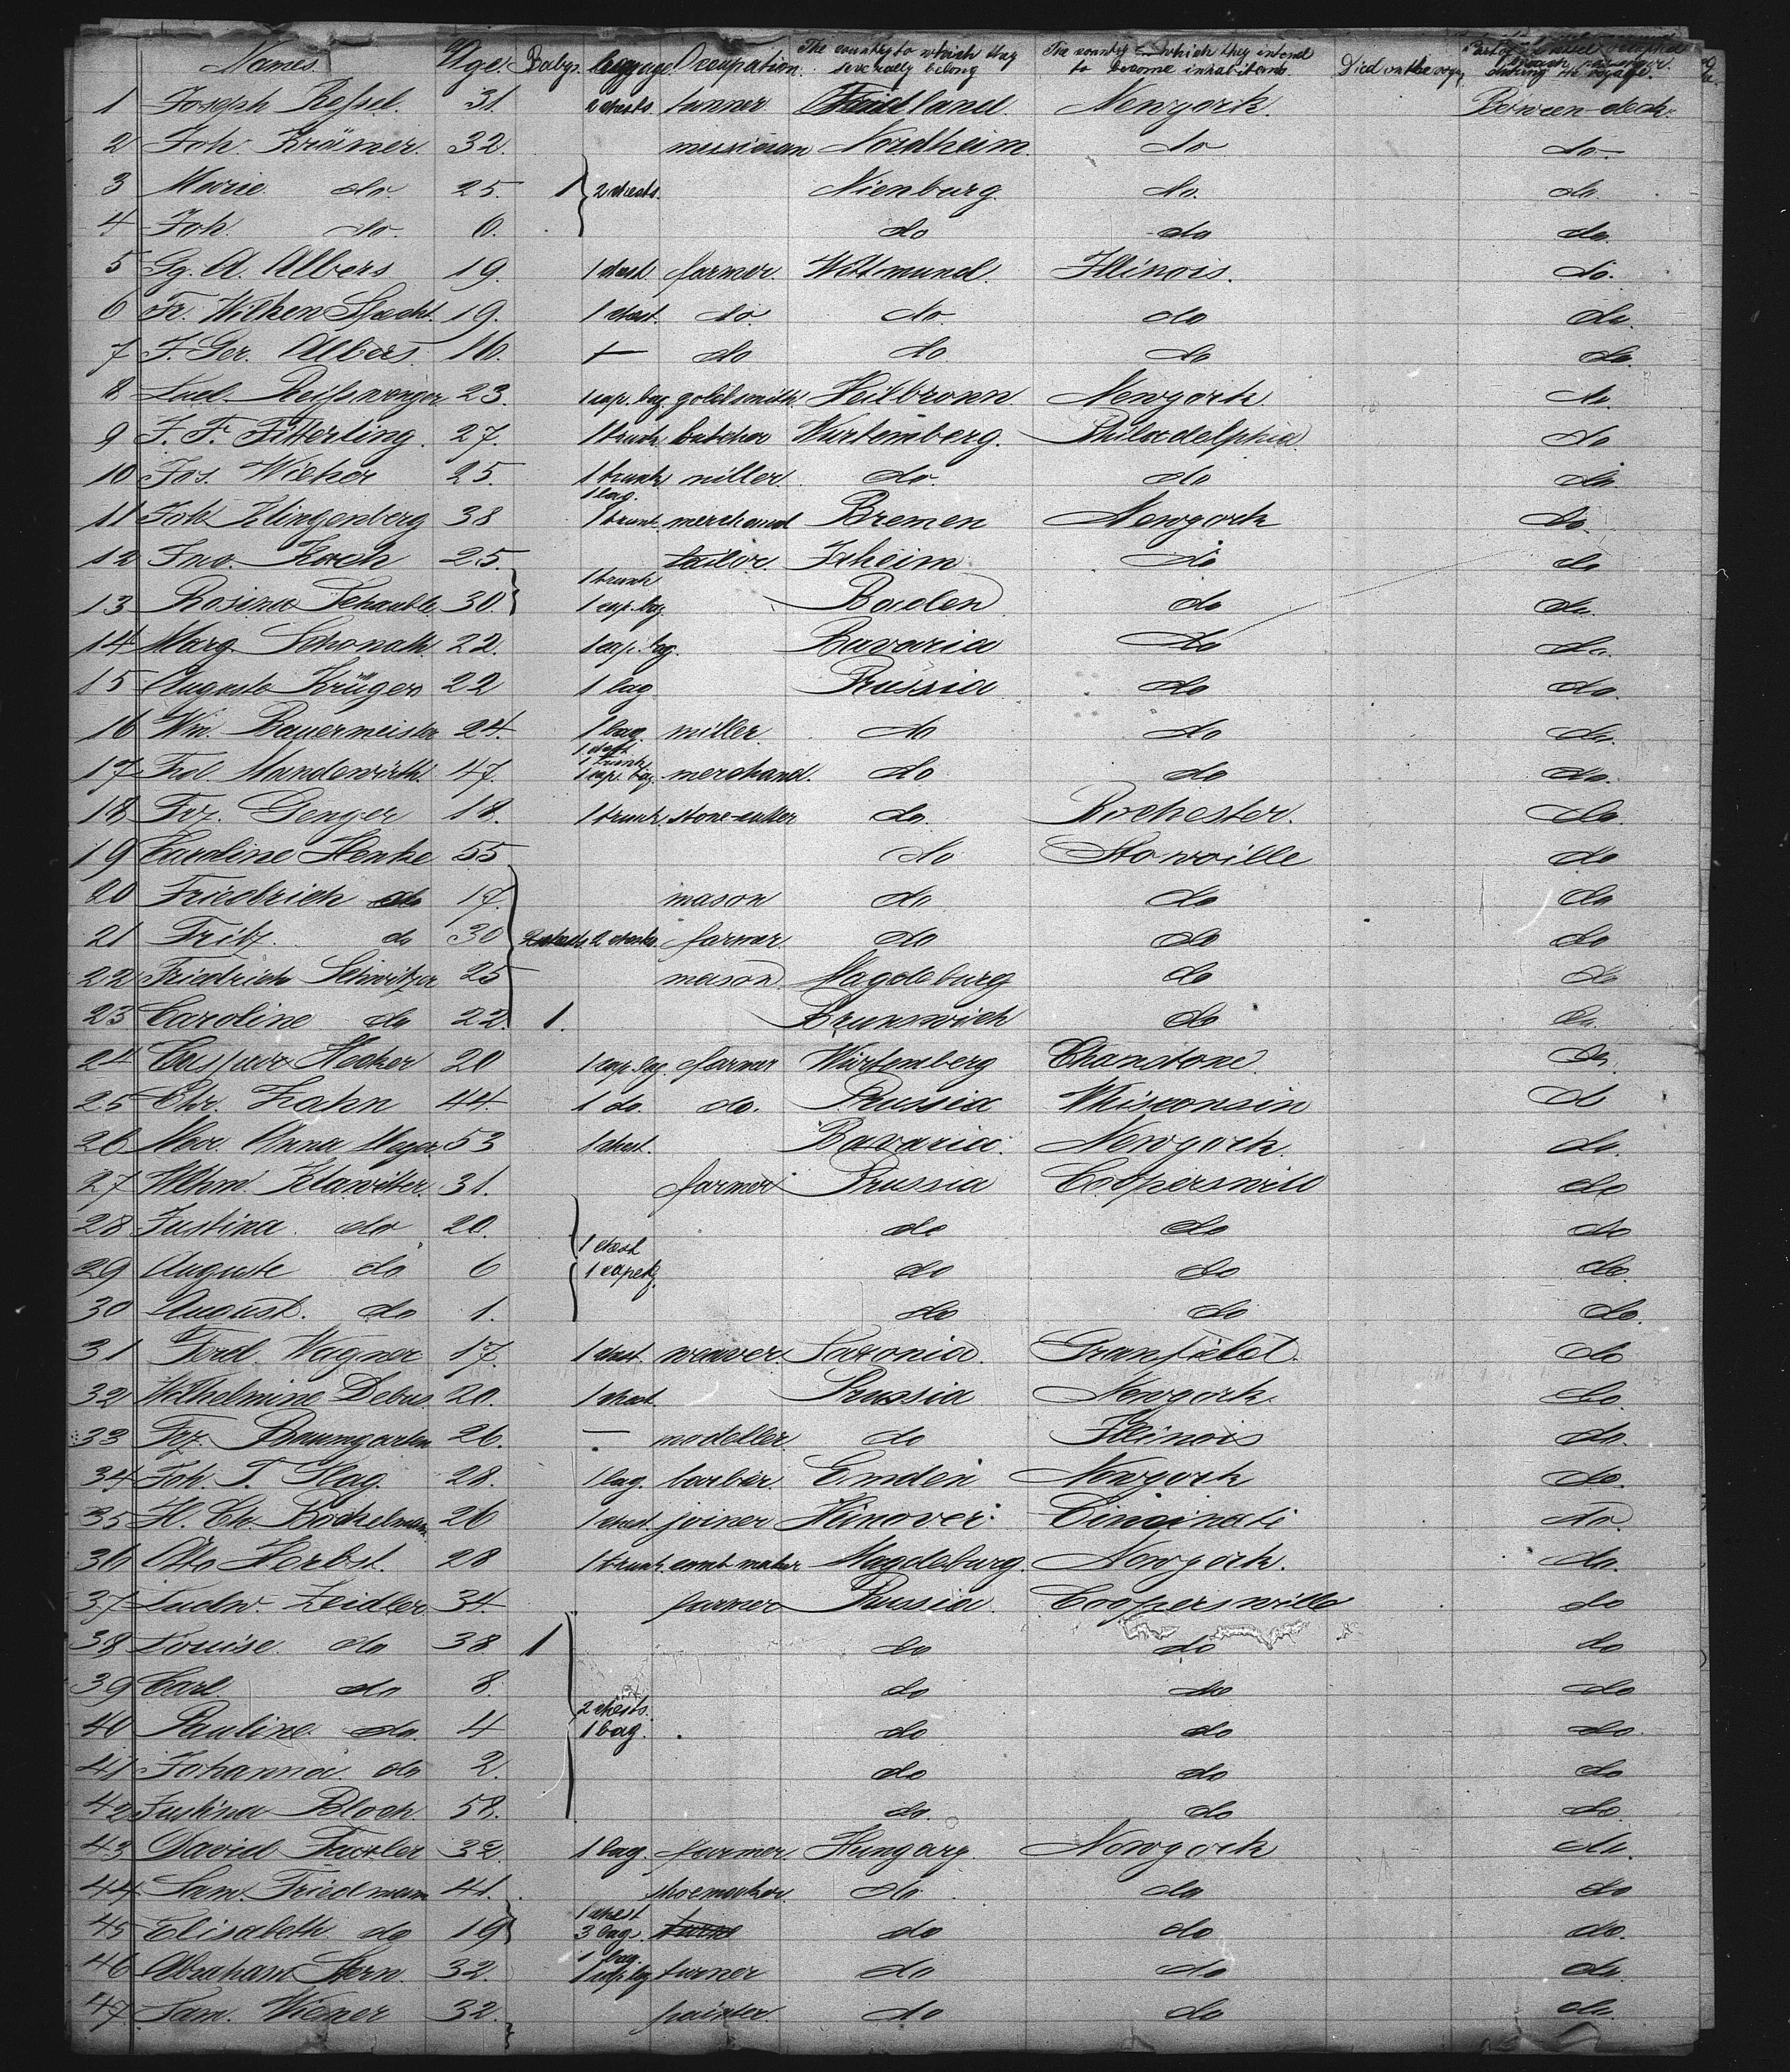 Names. Age. Babys. luggage. Occupation. The country to which they severally belong The country to which they intend to become inhabitants. Died on the voyage Part of vessel occupied during the voyage.
1 Joseph Ressel. 31. 2 chests. tanner Friedland. Newyork. Between-deck.
2 Joh. Krämer. 32. musician Nordheim. do do.
3 Marie do. 25. 1 2 chests. Nienburg. do. do.
4 Joh. do. 6. do do do.
5 Gg. A. Albers 19. 1 chest. farmer. Wittmund. Illinois. do.
6 Fr. Wilken Specht. 19. 1 chest. do. do. do do.
7 J. Ger. Albers 16. — do do do do.
8 Lud. 23. 1 cap. bag goldsmith. Heilbronn. Newyork. do.
9 J. F. Fitterling. 27. 1 trunk butcher Würtemberg. Philadelphia. do
10 Jos. Wieker 25. 1 trunk 1 bag. miller. do. do do.
11 Joh. Klingenberg 38 1 trunk. merchand Bremen Newyork do.
12 Jno. Koch 25. tailor. Ixheim. do do
13 Rosina Schauble 30. 1 trunk 1 cap. bag Baden do do.
14 Marg. Schonath. 22. 1 cap. bag. Bavaria do do.
15 Auguste Krüger 22 1 bag Prussia do do.
16 Wm. Bauermeister 24. 1 bag. 1 chest miller. do do do.
17 Mundewirth. 47. 1 trunk 1 cap. bag. merchand. do do do.
18 Frz. Genger 18. 1 trunk stone-cutter do. Rochester. do.
19 Caroline Henke 55 do do
20 Friedrich do 17. mason do do do
21 Fritz. do 30 2 chests. farmer. do do do
22 Friedrich Schwitzer 25 mason. Magdeburg do do
23 Caroline do 22. 1. Brunswich do do.
24 Caspar Hecker 20 1 cap. bag. farmer Würtemberg Chanstone. do.
25 Chr. Zahn 44. 1 do. do. Prussia Whisconsin do
26 Mar. Anna Meyer 53 1 chest. Bavaria. Newyork. do.
27 Wilhm. Klawitter. 31. farmer Prussia Cooperswill do
28 Justina. do 20. do do do
29 Auguste do 6 1 chest 1 capetb. do do do.
30 August. do 1. do do do.
31 Ferd. Wagner 17. 1 chest. weaver. Saxonia. Granfield. do
32 Wilhelmine Debus. 20. 1 chest. Prussia Newyork. do.
33 Frz. Baumgarten 26. — modeller. do Illinois do.
34 Joh. T. Haag. 28. 1 bag. barbier. Emden Newyork do.
35 H. Ch. Böckelmann. 26 1 chest. joiner Hanover. Cincinati do.
36 Otto Herbst. 28 1 trunk. comb maker Magdeburg. Newyork. do.
37 Ludw. Zeidler 34. farmer Prussia. Cooperswille do
38 Louise. do 38. 1 do do do
39 Carl do 8. do do do
40 Pauline. do. 4 2 chests. 1 bag. do do do.
41 Johanna do 2. do do do
42 Justina Bloch. 58. do. do do
43 David Fuxler 32. 1 bag. farmer. Hungary. Newyork do.
44 Sam. Friedmann 41. shoemaker. do. do do
45 Elisabeth do 19 1 chest 3 bag. do do do.
46 Abraham Stern. 32. 1 bag. 1 cap. bag turner do do do.
47 Sam. Wiener 32. painter. do do do.